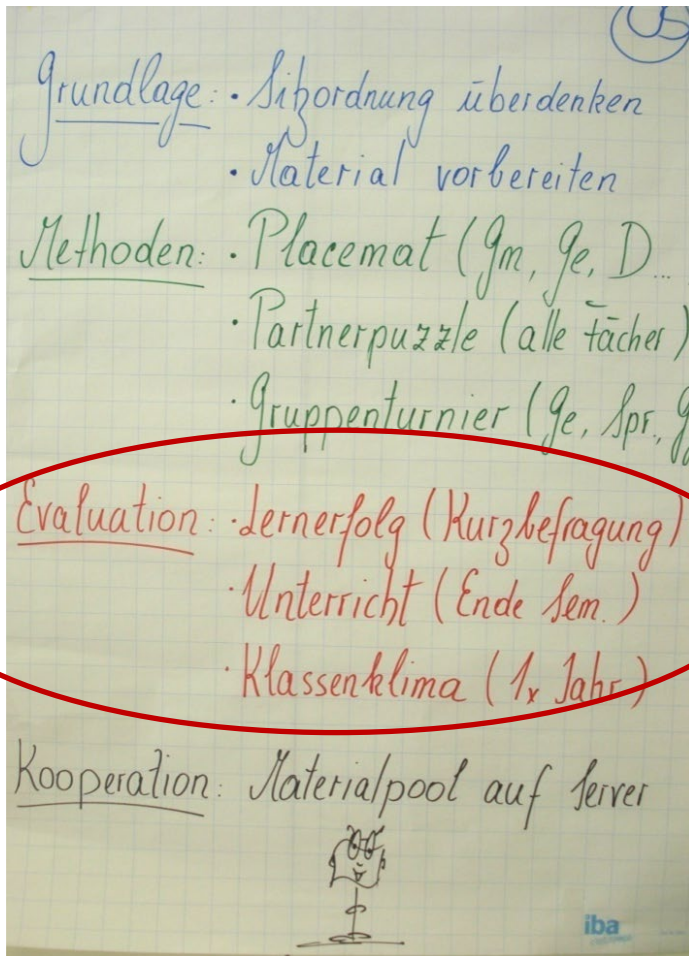 US
Grundlage: · Sitzordnung überdenken
· Material vorbereiten
Methoden: · Placemat (Gm, Ge, D...
· Partnerpuzzle (alle Fächer)
· Gruppenturnier (Ge, Spr., G
Evaluation: · Lernerfolg (Kurzbefragung)
· Unterricht (Ende Sem.)
· Klassenklima (1x Jahr)
Kooperation: Materialpool auf Server
iba